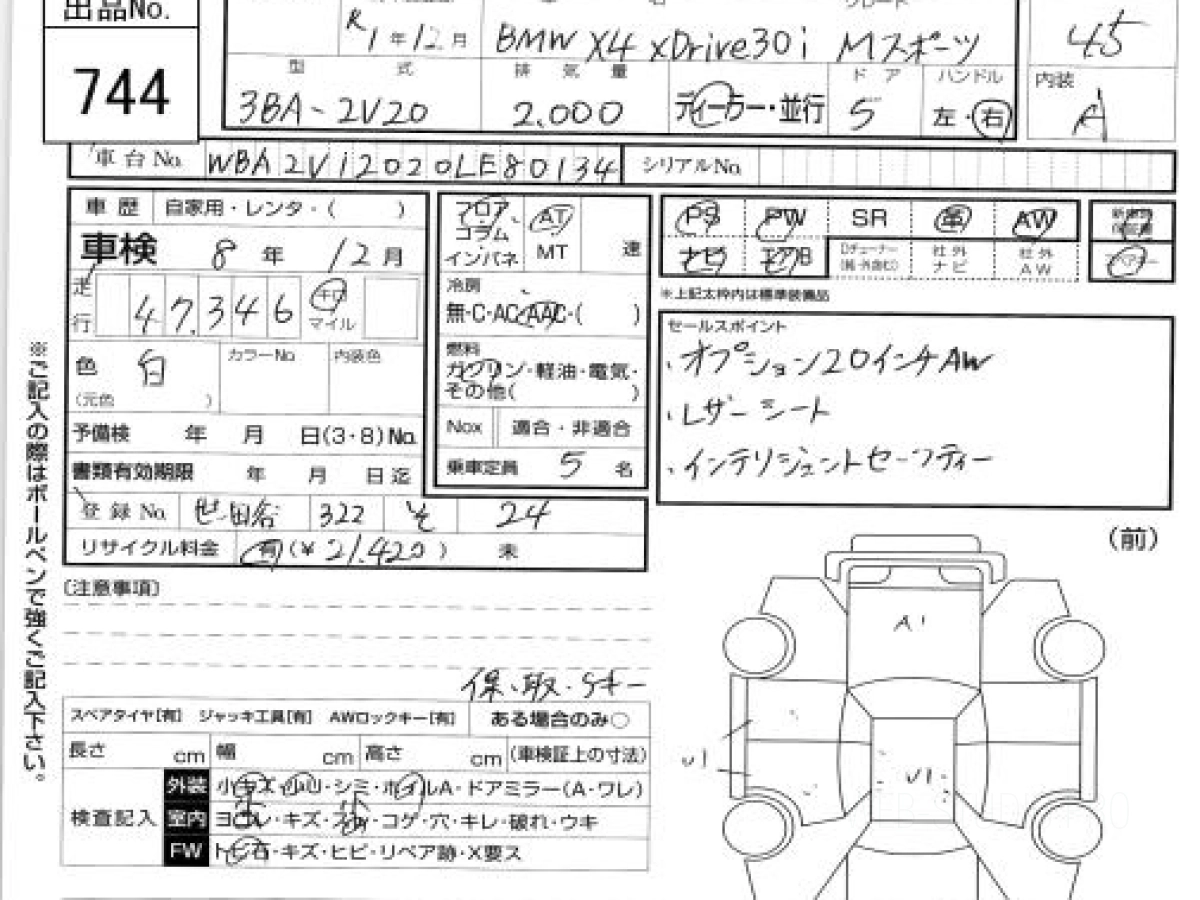 出品No.
744
R1年12月
BMW X4 xDrive30i Mスポーツ
45
型式
排気量
ドア
ハンドル
内装
3BA-2V20
2,000
ディーラー・並行
5
左・右
A
車台No.
WBA2V12020LE80134
シリアルNo.
車歴 自家用・レンタ・( )
車検 8年 12月
走行 47,346 キロ マイル
色 白 (元色 )
カラーNo 内装色
予備検 年 月 日(3・8)No.
書類有効期限 年 月 日迄
登録No. 世田谷 322 そ 24
リサイクル料金 有(¥21,420) 未
フロア コラム インパネ
AT MT 速
冷房
無・C・AC・AAC・( )
燃料
ガソリン・軽油・電気・
その他( )
Nox 適合・非適合
乗車定員 5 名
PS PW SR 革 AW
ナビ エアB 社外ナビ 社外AW
※上記太枠内は標準装備品
セールスポイント
・オプション20インチAW
・レザーシート
・インテリジェントセーフティー
※ご記入の際はボールペンで強くご記入下さい。
(前)
〔注意事項〕
保、取、Sキー
スペアタイヤ[有] ジャッキ工具[有] AWロックキー[有] ある場合のみ○
長さ cm 幅 cm 高さ cm (車検証上の寸法)
検査記入
外装 小キズ・小凹・シミ・ホイルA・ドアミラー(A・ワレ)
室内 ヨゴレ・キズ・スレ・コゲ・穴・キレ・破れ・ウキ
FW トビ石・キズ・ヒビ・リペア跡・X要ス
A1
U1
U1